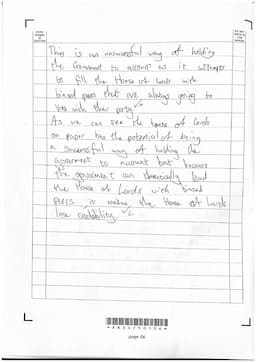 This is an unsuccessful way of holding
the Government to account as it attempts
to fill the House of Lords with
biased peers that are always going to
vote with their party.
As we can see the house of Lords
on paper has the potential of being
a successful way of holding the
government to account but because
the government can theoretically load
the House of Lords with biased
peers it makes the House of Lords
lose credability.
page 06